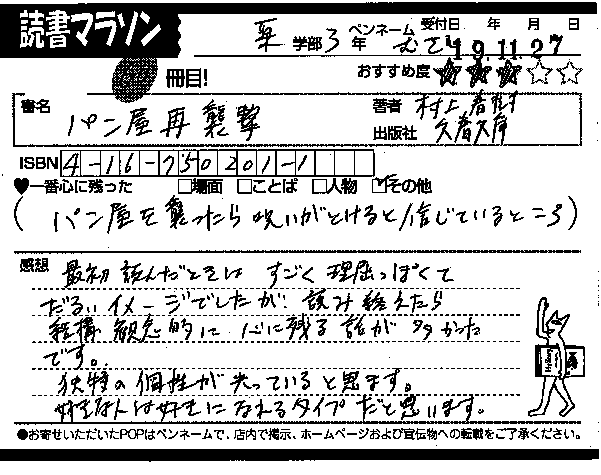 読書マラソン
薬 学部 3 年 ペンネーム 受付日 年 月 日
19.11.27
冊目! おすすめ度 ★★★☆☆
書名 パン屋再襲撃
著者 村上春樹
出版社 文春文庫
ISBN 4-16-750201-1
♥一番心に残った □場面 □ことば □人物 ☑その他
(パン屋を襲ったら呪いがとけると信じているところ)
感想 最初読んだときは すごく理屈っぽくて
だるいイメージでしたが、読み終えたら
結構 観念的に 心に残る話が多かった
です。
独特の個性が光っていると思ます。
好きな人は好きになれるタイプだと思います。
●お寄せいただいたPOPはペンネームで、店内で掲示、ホームページおよび宣伝物への転載をご了承ください。